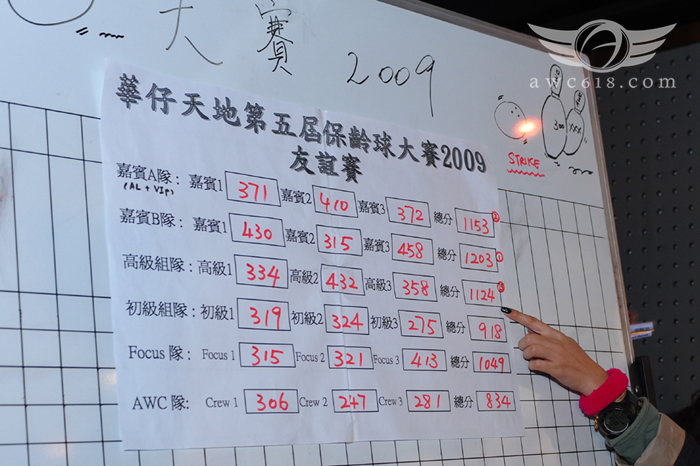 大賽 2009
awc618.com
300 XXX
STRIKE
華仔天地第五屆保齡球大賽2009
友誼賽
嘉賓A隊: 嘉賓1 371 嘉賓2 410 嘉賓3 372 總分 1153
(AL + VIP)
嘉賓B隊: 嘉賓1 430 嘉賓2 315 嘉賓3 458 總分 1203 1
高級組隊: 高級1 334 高級2 432 高級3 358 總分 1124
初級組隊: 初級1 319 初級2 324 初級3 275 總分 918
Focus 隊: Focus 1 315 Focus 2 321 Focus 3 413 總分 1049
AWC 隊: Crew 1 306 Crew 2 247 Crew 3 281 總分 834